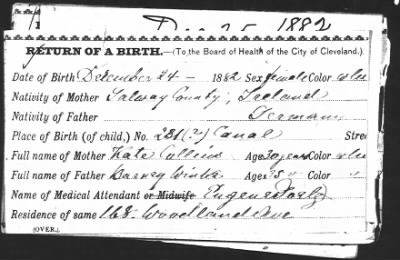 Dec 25 1882
RETURN OF A BIRTH.—(To the Board of Health of the City of Cleveland.)
Date of Birth December 24 — 1882 Sex female Color
Nativity of Mother Galway County, Ireland
Nativity of Father German
Place of Birth (of child,) No. 231 (?) Canal Stree
Full name of Mother Kate Collins Age 30 years Color
Full name of Father Barney Age 35 " Color "
Name of Medical Attendant or Midwife Eugene
Residence of same 168 Woodland Ave
(OVER.)